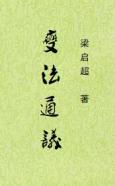 梁启超 著
變法通議